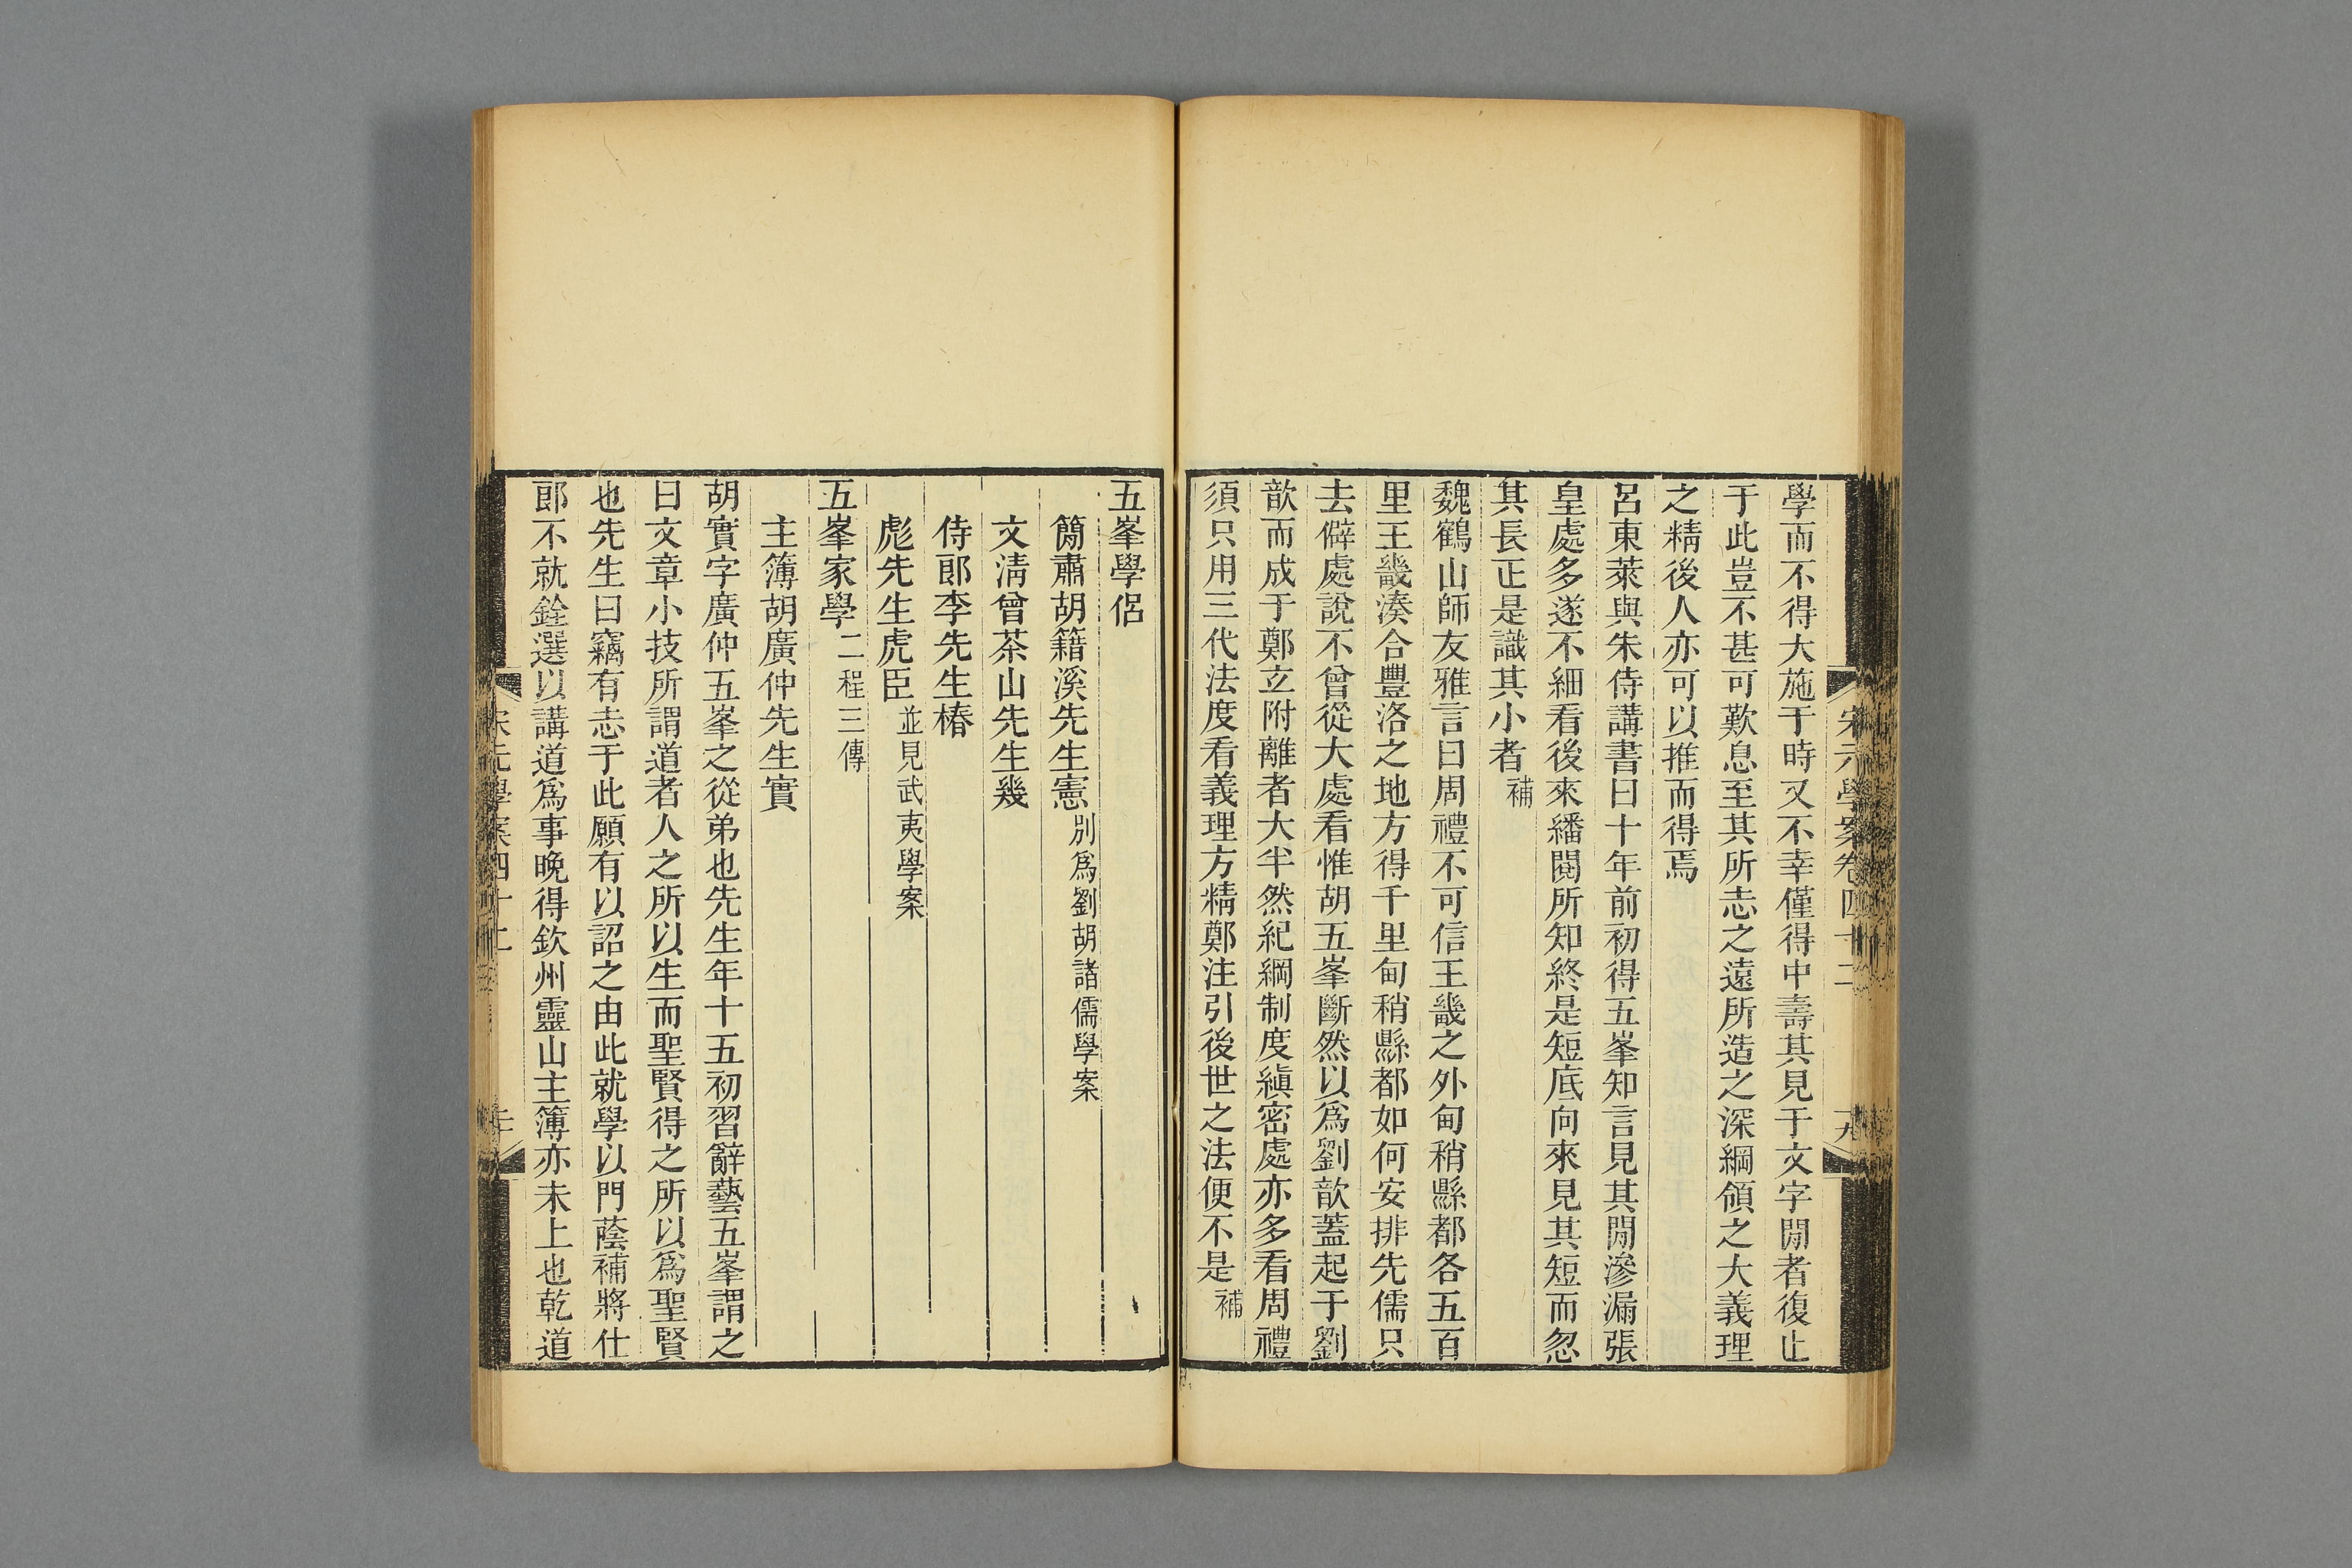 學而不得大施于時又不幸僅得中壽其見于文字閒者復止
于此豈不甚可歎息至其所志之遠所造之深綱領之大義理
之精後人亦可以推而得焉
呂東萊與朱侍講書曰十年前初得五峯知言見其閒滲漏張
皇處多遂不細看後來繙閱所知終是短底向來見其短而忽
其長正是識其小者補
魏鶴山師友雅言曰周禮不可信王畿之外甸稍縣都各五百
里王畿湊合豐洛之地方得千里甸稍縣都如何安排先儒只
去僻處說不曾從大處看惟胡五峯斷然以爲劉歆蓋起于劉
歆而成于鄭立附離者大半然紀綱制度縝密處亦多看周禮
須只用三代法度看義理方精鄭注引後世之法便不是補
五峯學侶
簡肅胡籍溪先生憲別爲劉胡諸儒學案
文清曾茶山先生幾
侍郎李先生椿
彪先生虎臣並見武夷學案
五峯家學二程三傳
主簿胡廣仲先生實
胡實字廣仲五峯之從弟也先生年十五初習辭藝五峯謂之
曰文章小技所謂道者人之所以生而聖賢得之所以爲聖賢
也先生曰竊有志于此願有以詔之由此就學以門蔭補將仕
郎不就銓選以講道爲事晚得欽州靈山主簿亦未上也乾道
宋元學案卷四十二
十九
宋元學案四十二